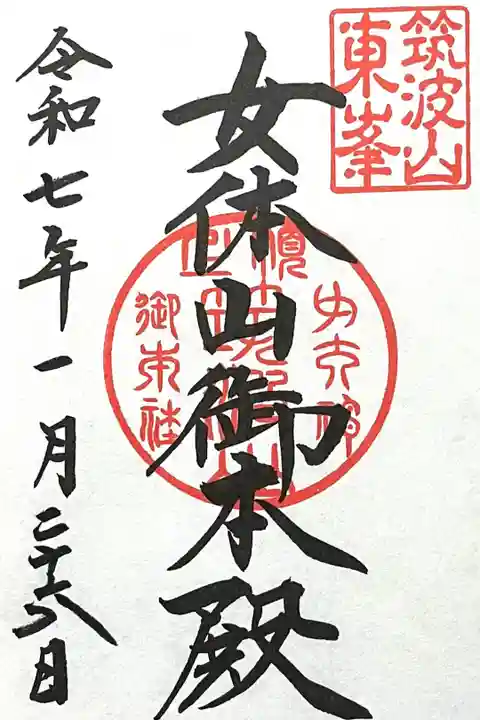 筑波山
東峯
女体山御本殿
御本社
令和七年一月二十六日